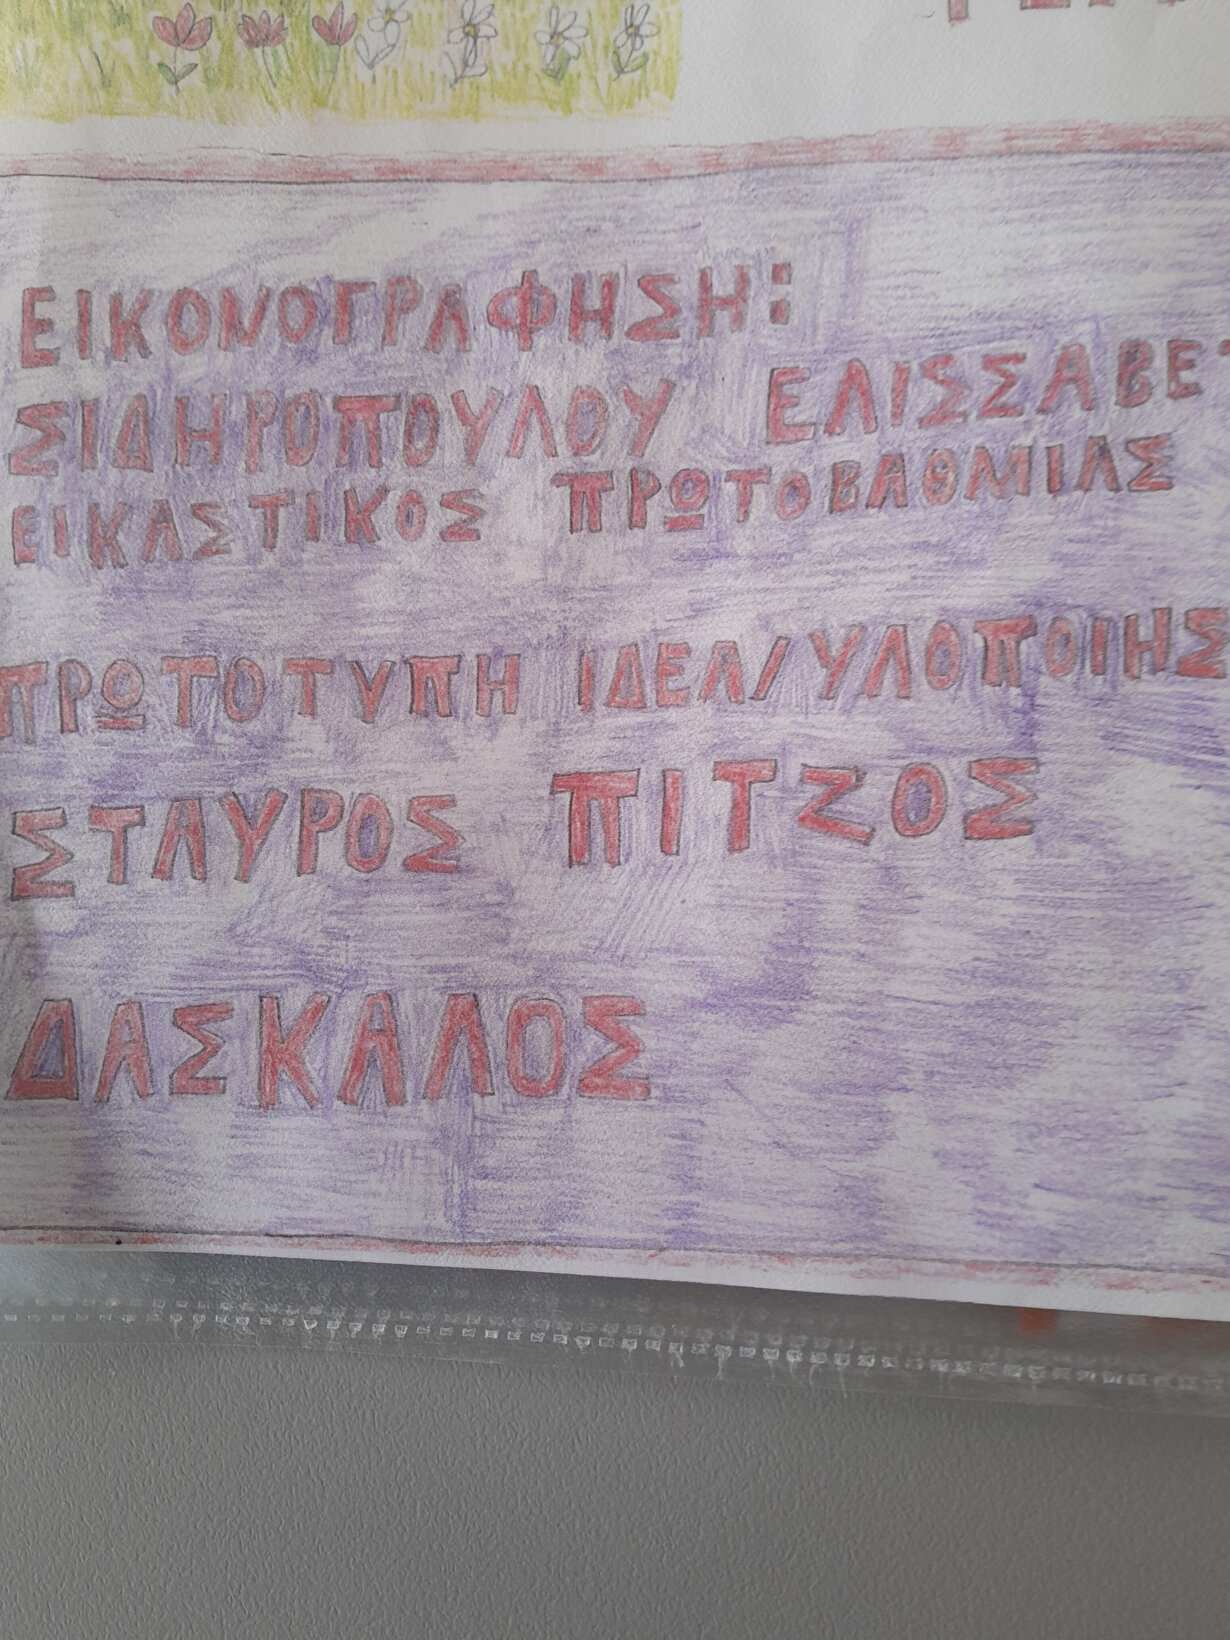 ΕΙΚΟΝΟΓΡΑΦΗΣΗ:
ΣΙΔΗΡΟΠΟΥΛΟΥ ΕΛΙΣΣΑΒΕΤ
ΕΙΚΑΣΤΙΚΟΣ ΠΡΩΤΟΒΑΘΜΙΑΣ
ΠΡΩΤΟΤΥΠΗ ΙΔΕΑ/ΥΛΟΠΟΙΗΣ
ΣΤΑΥΡΟΣ ΠΙΤΖΟΣ
ΔΑΣΚΑΛΟΣ